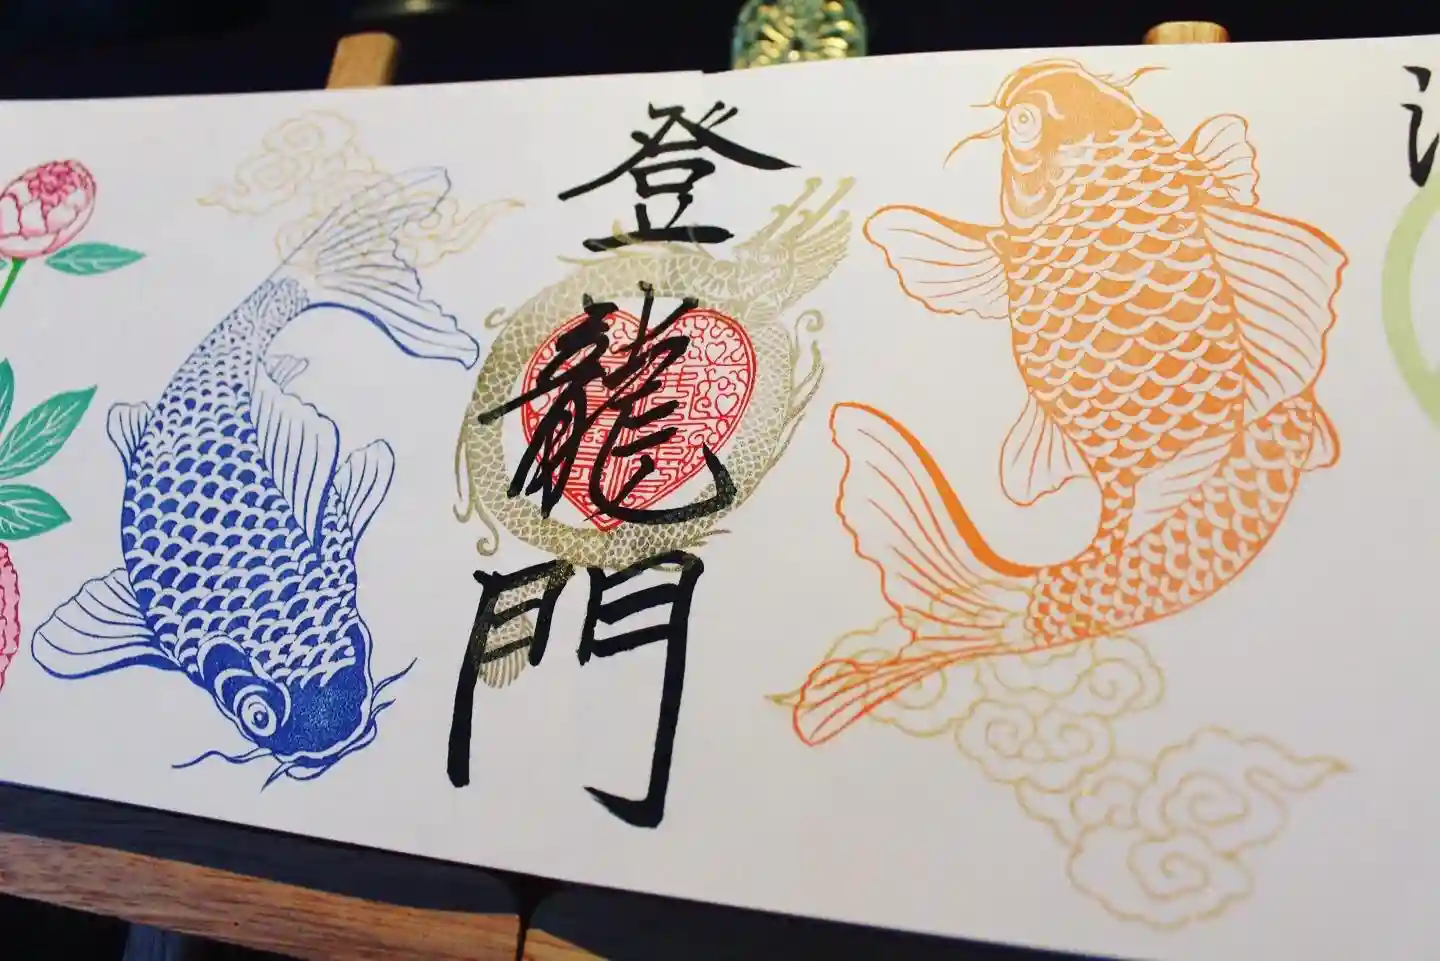 登龍門